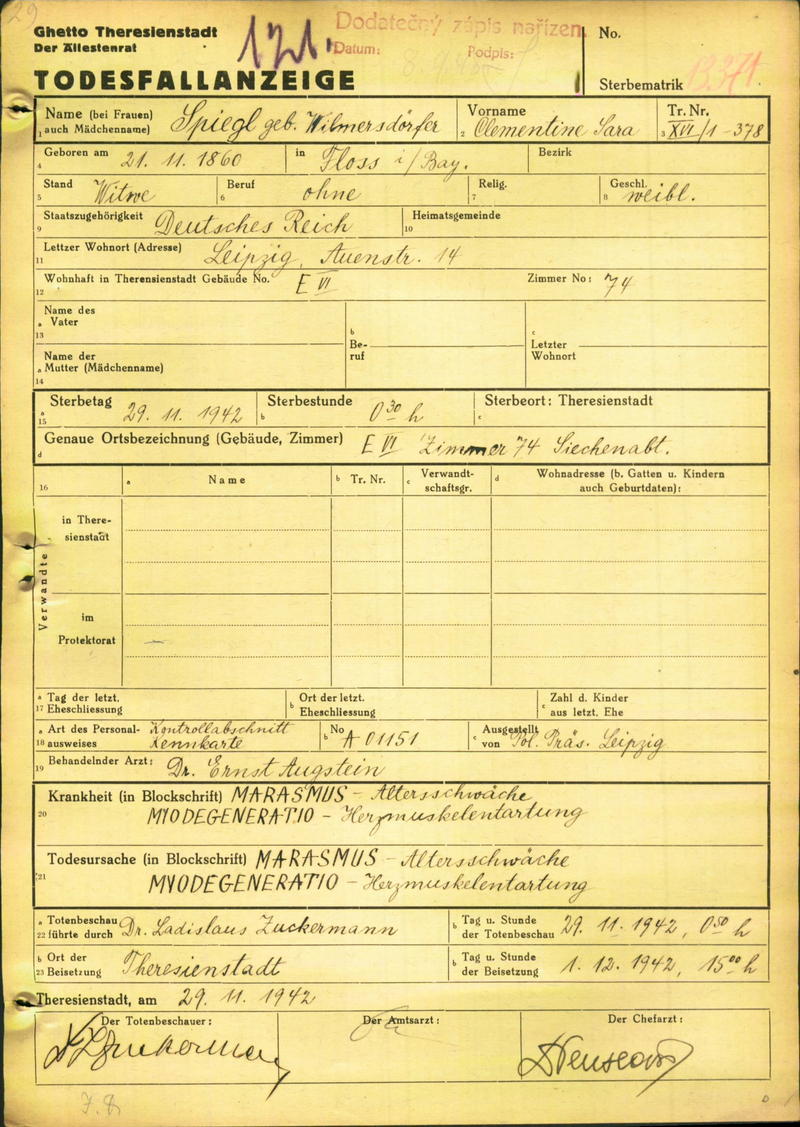 29
Ghetto Theresienstadt
Der Ältestenrat
TODESFALLANZEIGE
Dodatečný zápis nařízen
Datum:
Podpis:
No.
Sterbematrik
Name (bei Frauen)
1 auch Mädchenname) Spiegl geb. Wilmersdörfer
2 Vorname Clementine Sara
3 Tr. Nr. XVI/1-378
4 Geboren am 21. 11. 1860 in Floss i/Bay. Bezirk
5 Stand Witwe
6 Beruf ohne
7 Relig.
8 Geschl. weibl.
9 Staatszugehörigkeit Deutsches Reich
10 Heimatsgemeinde
11 Lettzer Wohnort (Adresse) Leipzig, Auenstr. 14
12 Wohnhaft in Therensienstadt Gebäude No. E VI Zimmer No: 74
Name des
a Vater
13
b Be-
ruf
c Letzter
Wohnort
Name der
a Mutter (Mädchenname)
14
a 15 Sterbetag 29. 11. 1942
b Sterbestunde 0 30 h
c Sterbeort: Theresienstadt
d Genaue Ortsbezeichnung (Gebäude, Zimmer) E VI Zimmer 74 Siechenabt.
16
a Name
b Tr. Nr.
c Verwandt-
schaftsgr.
d Wohnadresse (b. Gatten u. Kindern
auch Geburtdaten):
Verwandte
in There-
sienstadt
im
Protektorat —
a Tag der letzt.
17 Eheschliessung
b Ort der letzt.
Eheschliessung
c Zahl d. Kinder
aus letzt. Ehe
a Art des Personal-
18 ausweises
Kontrollabschnitt
Kennkarte
b No A 01151
c Ausgestellt
von Pol. Präs. Leipzig
19 Behandelnder Arzt: Dr. Ernst Augstein
20 Krankheit (in Blockschrift) MARASMUS - Altersschwäche
MYODEGENERATIO - Herzmuskelentartung
21 Todesursache (in Blockschrift) MARASMUS - Altersschwäche
MYODEGENERATIO - Herzmuskelentartung
a Totenbeschau
22 führte durch Dr. Ladislaus Zuckermann
b Tag u. Stunde
der Totenbeschau 29. 11. 1942, 0 50 h
b Ort der
23 Beisetzung Theresienstadt
b Tag u. Stunde
der Beisetzung 1. 12. 1942, 15 00 h
Theresienstadt, am 29. 11. 1942
Der Totenbeschauer:
Der Amtsarzt:
Der Chefarzt: